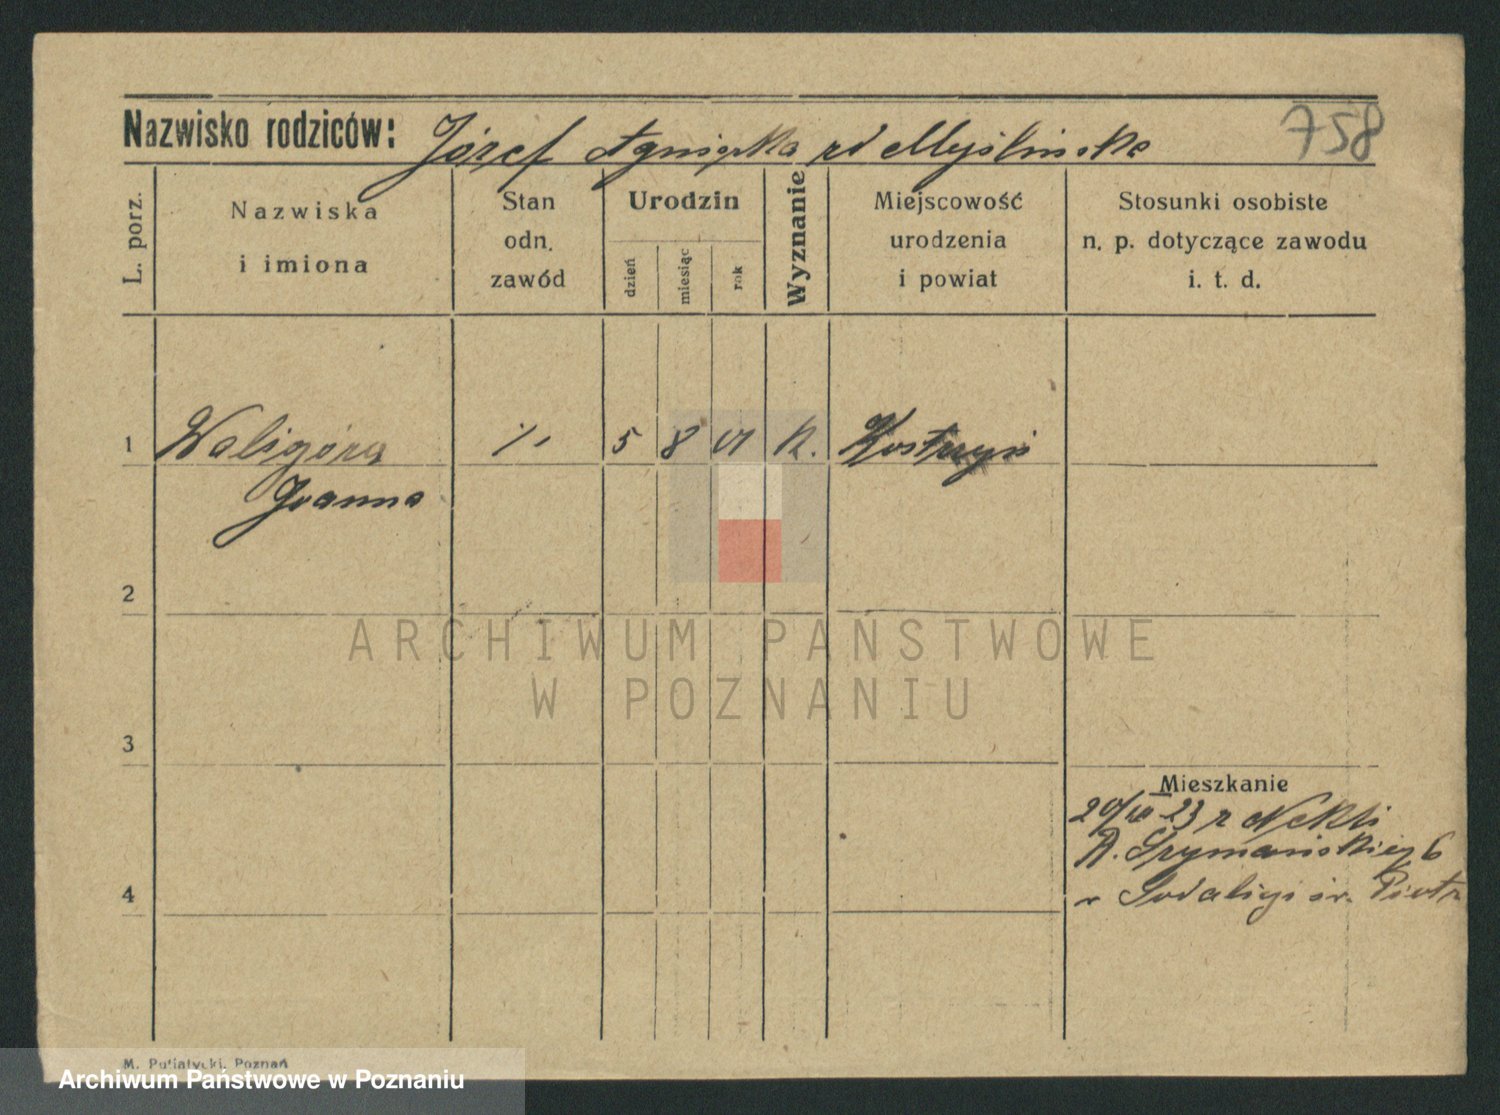 758
Nazwisko rodziców: Józef Agnieszka zd Myślińska
L. porz.
Nazwiska
i imiona
Stan
odn.
zawód
Urodzin
dzień
miesiąc
rok
Wyznanie
Miejscowość
urodzenia
i powiat
Stosunki osobiste
n. p. dotyczące zawodu
i. t. d.
1 Waligóra 5 8 01 k. Kostrzyn
Joanna
2
ARCHIWUM PAŃSTWOWE
W POZNANIU
3
Mieszkanie
23 z Nekli
R. Szymańskiego 6
Sodalicji św. Piotr
4
M. Putiatycki, Poznań
Archiwum Państwowe w Poznaniu